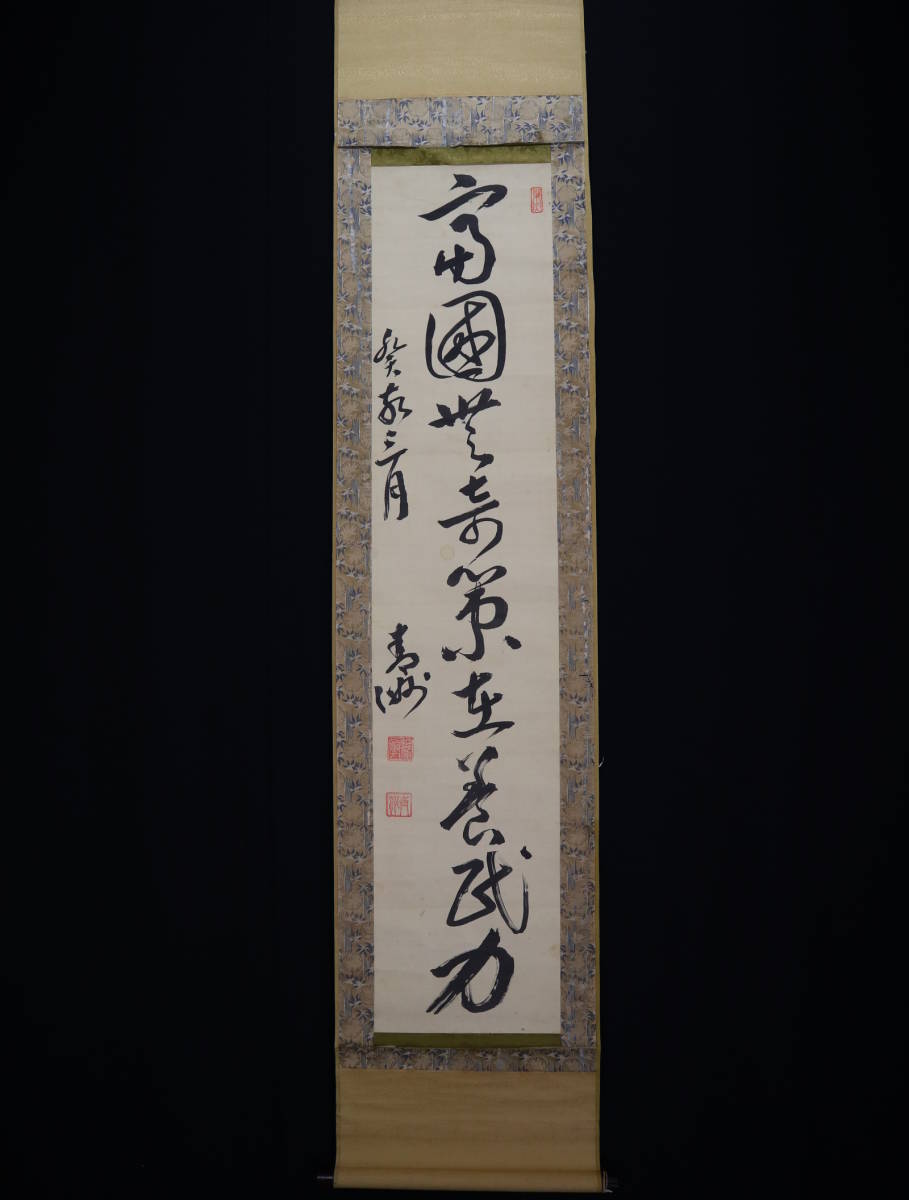 富國無奇策在養民力
癸亥三月
青洲